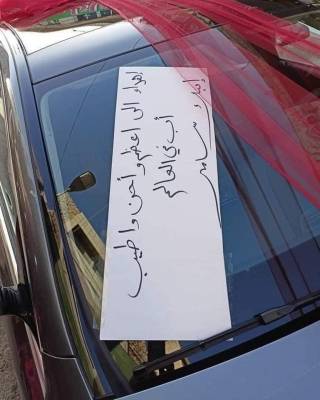 اهداء الى اعظم و أحن و اطيب
أب في العالم
و سامر